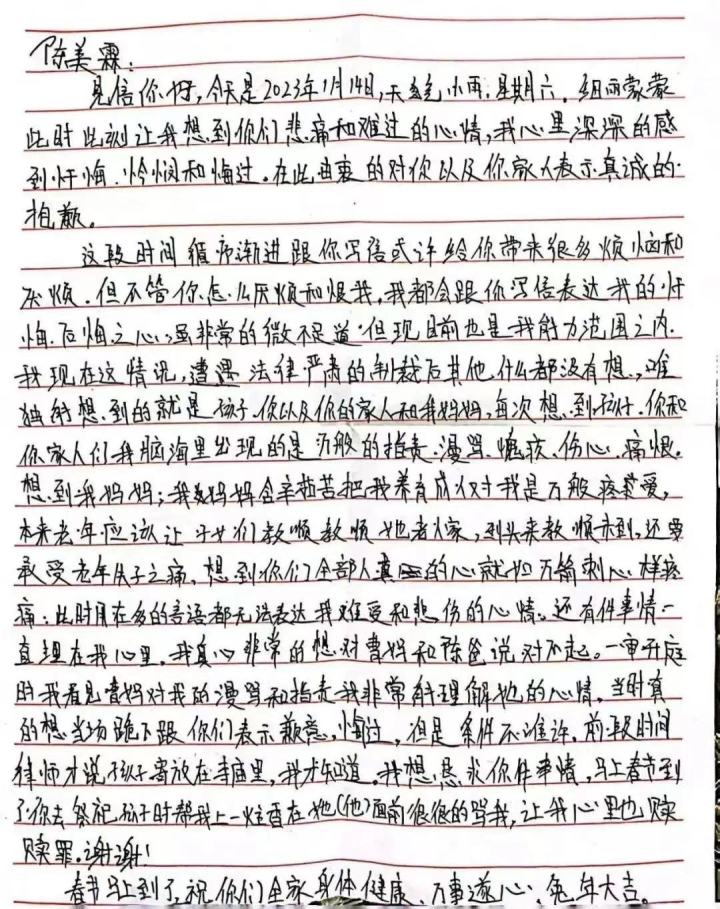 陈美霖:
见信你好,今天是2023年1月14日,天气小雨.星期六.细雨蒙蒙
此时此刻让我想到你们悲痛和难过的心情,我心里深深的感
到忏悔.怜悯和悔过.在此由衷的对你以及你家人表示真诚的
抱歉。
这段时间循序渐进跟你写信或许给你带来很多烦恼和
厌烦.但不管你怎么厌烦和恨我,我都会跟你写信表达我的忏
悔.后悔之心,虽非常的微不足道,但现目前也是我能力范围之内.
我现在这情况,遭遇法律严肃的制裁后其他什么都没有想,唯
独能想到的就是孩子.你以及你的家人和我妈妈,每次想到孩子.你和
你家人们我脑海里出现的是万般的指责.漫骂.愧疚.伤心.痛恨.
想到我妈妈;我妈妈含辛茹苦把我养育成人对我是万般疼爱,
本来老年应该让子女们孝顺孝顺她老人家,到头来孝顺未到,还要
承受老年失子之痛.想到你们全部人真的心就如万箭刺心样疼
痛;此时用在多的言语都无法表达我难受和悲伤的心情。还有件事情一
直埋在我心里.我真心非常的想对曹妈和陈爸说对不起。一审开庭
时我看见曹妈对我的漫骂和指责我非常能理解她的心情,当时真
的想当场跪下跟你们表示歉意.悔过,但是条件不准许.前段时间
律师才说孩子寄放在寺庙里,我才知道.我想恳求你件事情.马上春节到
了你去祭祀孩子时帮我上一炷香在她(他)面前很很的骂我,让我心里也赎
赎罪.谢谢!
春节马上到了,祝你们全家身体健康、万事遂心、兔年大吉。